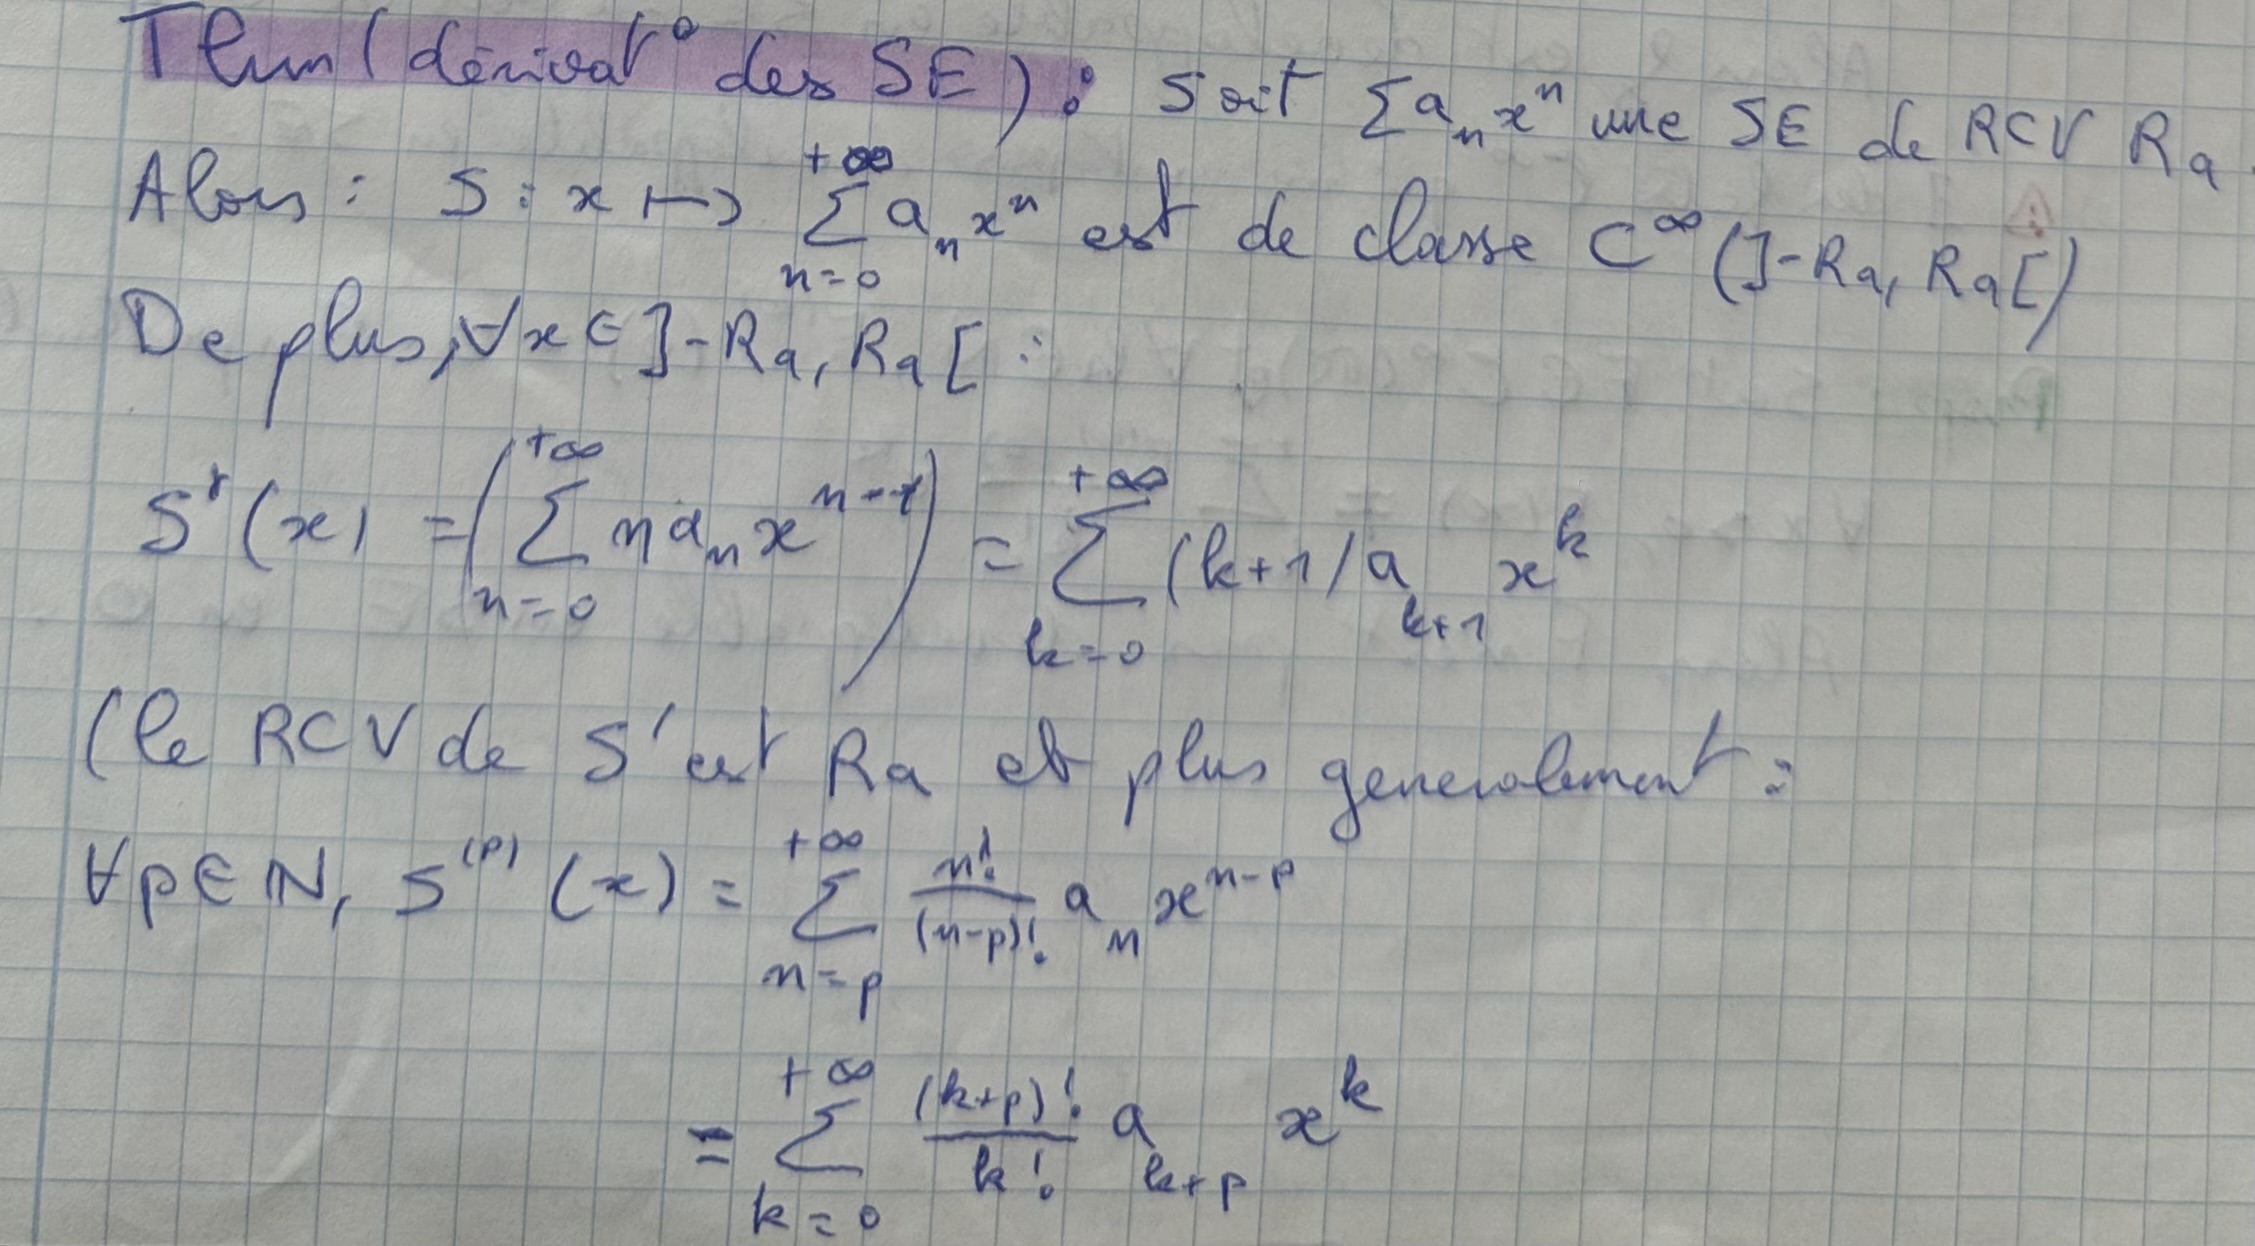 Thm (dérivat° des SE) : Soit ∑ aₙ xⁿ une SE de RCV Ra.
Alors : S : x ↦ ∑_{n=0}^{+∞} aₙ xⁿ est de classe C^∞ (]-Ra, Ra[)
De plus, ∀x ∈ ]-Ra, Ra[ :
S'(x) = (∑_{n=0}^{+∞} n aₙ x^{n-1}) = ∑_{k=0}^{+∞} (k+1) a_{k+1} x^k
(le RCV de S' est Ra et plus generalement :
∀p ∈ ℕ, S^{(p)} (x) = ∑_{n=p}^{+∞} \frac{n!}{(n-p)!} aₙ x^{n-p}
= ∑_{k=0}^{+∞} \frac{(k+p)!}{k!} a_{k+p} x^k